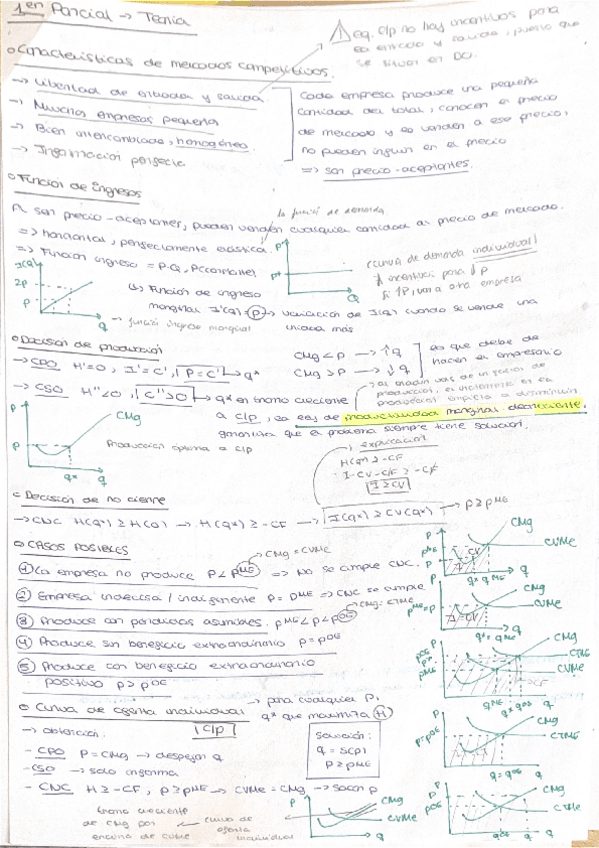 1er Parcial → Teoría
⚠ eq. c/p no hay incentivos para
la entrada y salida, puesto que
se sitúan en
o Características de mercados competitivos.
→ Libertad de entrada y salida
→ Muchas empresas pequeñas
→ Bien intercambiado, homogéneo.
→ Información perfecta.
Cada empresa produce una pequeña
cantidad del total, conocen el precio
de mercado y lo venden a ese precio,
no pueden influir en el precio
⇒ son precio-aceptantes.
o Función de Ingresos
Al son precio-aceptantes, pueden vender cualquier cantidad al precio de mercado.
la función de demanda
⇒ horizontal, perfectamente elástica.
⇒ Función ingreso = P·Q, P(constante)
Función de ingreso
marginal I'(q) = P → variación de I(q) cuando se vende una
unidad más
→ función ingreso marginal
I(q)
2P
P
q
P
P*
Q
(curva de demanda individual)
∄ incentivos para ↓P
si ↑P, van a otra empresa
o Decisión de producción
→ CPO H'=0, I'=C', P=C' → q*
→ CSO H''<0, C''>0 → q* en tramo creciente
CMg < P → ↑q
CMg > P → ↓q
lo que debe de
hacer el empresario
a c/p, la ley de productividad marginal decreciente,
garantiza que el problema siempre tiene solución.
P
P
CMg
Producción óptima a c/p
q*
q
explicación
H(q*) ≥ -CF
I-CV-CF ≥ -CF
I ≥ CV
o Decisión de no cierre
→ CNC H(q*) ≥ H(0) → H(q*) ≥ -CF → I(q*) ≥ CV(q*) → P ≥ PME
o CASOS POSIBLES
→ CMg = CVMe
① La empresa no produce P < PME ⇒ No se cumple CNC.
② Empresa indecisa / indiferente P = PME ⇒ CNC se cumple
→ CMg = CTMe
③ Produce con pérdidas asumibles. PME < P < POE
④ Produce sin beneficio extraordinario P = POE
⑤ Produce con beneficio extraordinario
positivo P > POE
o Curva de oferta individual → para cualquier P,
q* que maximiza H
→ obtención. c/p
- CPO P = CMg → despejar q
- CSO → solo informa
- CNC H ≥ -CF, P ≥ PME → CVMe = CMg → sacar P
Solución:
q = S(P)
P ≥ PME
tramo creciente
de CMg por
encima de CVMe
← curva de
oferta
individual
P
CMg
CVMe
q
CMg
CVMe
q
q* qME
P
CMg
CVMe
q
q* = qME
P
CMg
CTMe
CVMe
CF
q
P
P=POE
CMg
CTMe
q
q = qOE
P
POE
CMg
CTMe
q